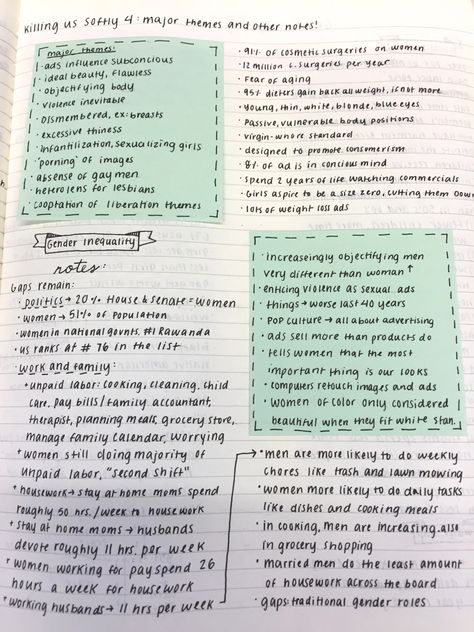 Killing us softly 4: major themes and other notes!
major themes!
· ads influence subconcious
· ideal beauty, flawless
· objectifying body
· violence inevitable
· Dismembered, ex: breasts
· excessive thiness
· infantilization, sexualizing girls
· "porning" of images
· absense of gay men
· hetero lens for lesbians
· cooptation of liberation themes
· 91% of cosmetic surgeries on women
· 12 million c. surgeries per year
· Fear of aging
· 95% dieters gain back all weight, if not more
· Young, thin, white, blonde, blue eyes
· Passive, vulnerable body positions
· virgin-whore standard
· designed to promote consumerism
· 8% of ad is in concious mind
· Spend 2 years of life watching commercials
· Girls aspire to be a size zero, cutting them down
· lots of weight loss ads
Gender Inequality
notes:
Gaps remain:
· politics → 20% House & Senate = women
· women → 51% of population
· women in national govnts. #1 Rawanda
· us ranks at #76 in the list
· work and family:
+ unpaid labor: cooking, cleaning, child
care, pay bills/family accountant,
therapist, planning meals, grocery store,
manage family calendar, worrying
+ women still doing majority of
unpaid labor, "second shift"
+ housework → stay at home moms spend
roughly 50 hrs./week to housework
+ stay at home moms → husbands
devote roughly 11 hrs. per week
+ women working for pay spend 26
hours a week for housework
+ working husbands → 11 hrs per week
· increasingly objectifying men
very different than woman ↑
· enticing violence as sexual ads
· things → worse last 40 years
· POP culture → all about advertising
· ads sell more than products do
· tells women that the most
important thing is our looks
· computers retouch images and ads
· women of color only considered
beautiful when they fit white stan.
· men are more likely to do weekly
chores like trash and lawn mowing
· women more likely to do daily tasks
like dishes and cooking meals
· in cooking, men are increasing. also
in grocery shopping
· married men do the least amount
of housework across the board
· gaps: traditional gender roles